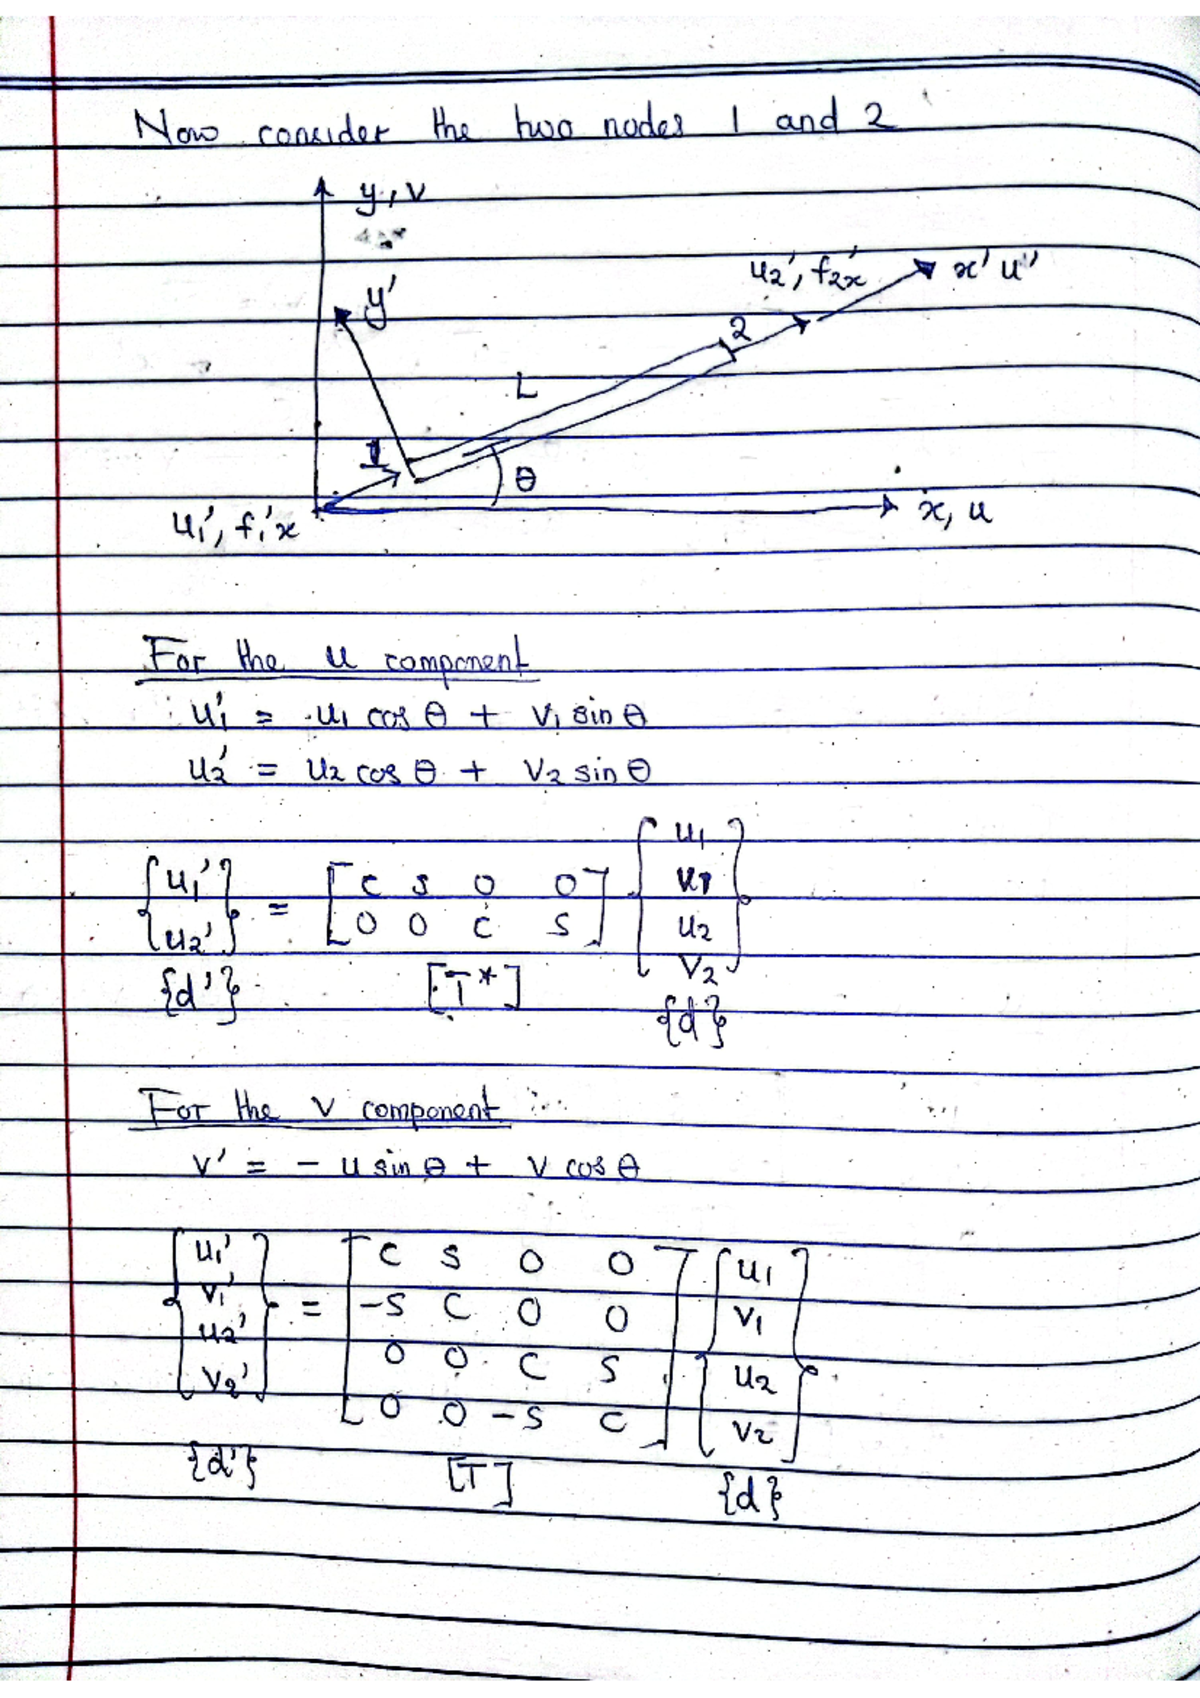 Now consider the two nodes 1 and 2
y, v
y'
u2', f2x'
x' u'
2
L
1
θ
u1', f1'x
x, u
For the u component
u1' = u1 cos θ + v1 sin θ
u2' = u2 cos θ + v2 sin θ
{u1' u2'} = [c s 0 0
0 0 c s] {u1 v1 u2 v2}
{d'} [T*] {d}
For the v component
v' = - u sin θ + v cos θ
{u1' v1' u2' v2'} = [c s 0 0
-s c 0 0
0 0 c s
0 0 -s c] {u1 v1 u2 v2}
{d'} [T] {d}